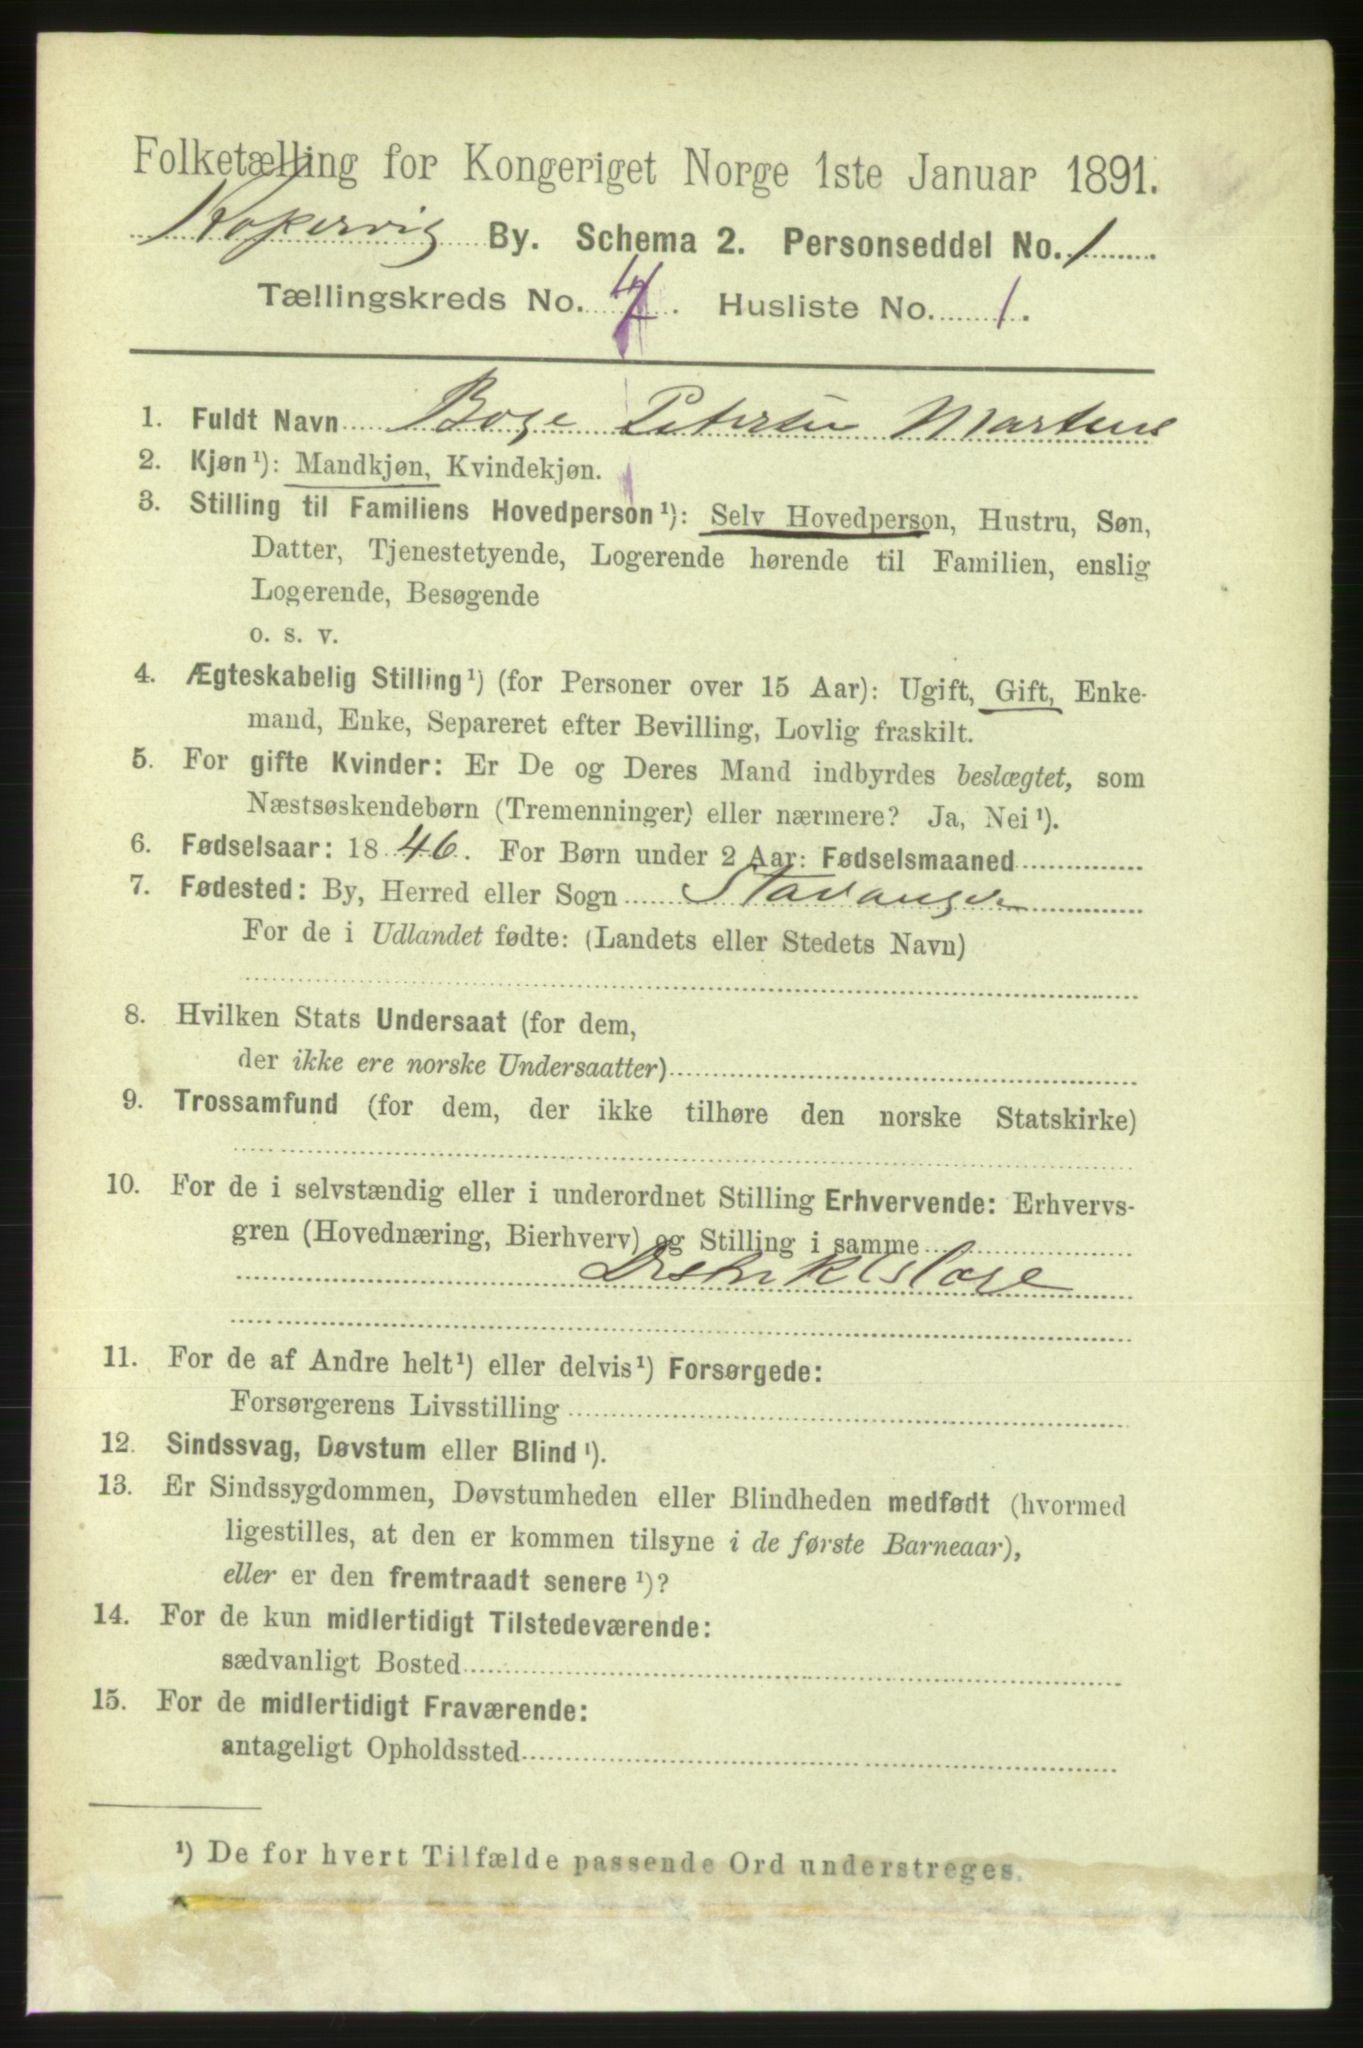 Folketælling for Kongeriget Norge 1ste Januar 1891.
Kopervig By. Schema 2. Personseddel No. 1
Tællingskreds No. . Husliste No. 1.
1. Fuldt Navn Petersen Martens
2. Kjøn¹): Mandkjøn, Kvindekjøn.
3. Stilling til Familiens Hovedperson¹): Selv Hovedperson, Hustru, Søn,
Datter, Tjenestetyende, Logerende hørende til Familien, enslig
Logerende, Besøgende
o. s. v.
4. Ægteskabelig Stilling¹) (for Personer over 15 Aar): Ugift, Gift, Enke-
mand, Enke, Separeret efter Bevilling, Lovlig fraskilt.
5. For gifte Kvinder: Er De og Deres Mand indbyrdes beslægtet, som
Næstsøskendebørn (Tremenninger) eller nærmere? Ja, Nei¹).
6. Fødselsaar: 1846. For Børn under 2 Aar: Fødselsmaaned
7. Fødested: By, Herred eller Sogn Stavanger
For de i Udlandet fødte: (Landets eller Stedets Navn)
8. Hvilken Stats Undersaat (for dem,
der ikke ere norske Undersaatter)
9. Trossamfund (for dem, der ikke tilhøre den norske Statskirke)
10. For de i selvstændig eller i underordnet Stilling Erhvervende: Erhvervs-
gren (Hovednæring, Bierhverv) og Stilling i samme
Distriktslæge
11. For de af Andre helt¹) eller delvis¹) Forsørgede:
Forsørgerens Livsstilling
12. Sindssvag, Døvstum eller Blind¹).
13. Er Sindssygdommen, Døvstumheden eller Blindheden medfødt (hvormed
ligestilles, at den er kommen tilsyne i de første Barneaar),
eller er den fremtraadt senere¹)?
14. For de kun midlertidigt Tilstedeværende:
sædvanligt Bosted
15. For de midlertidigt Fraværende:
antageligt Opholdssted
¹) De for hvert Tilfælde passende Ord understreges.